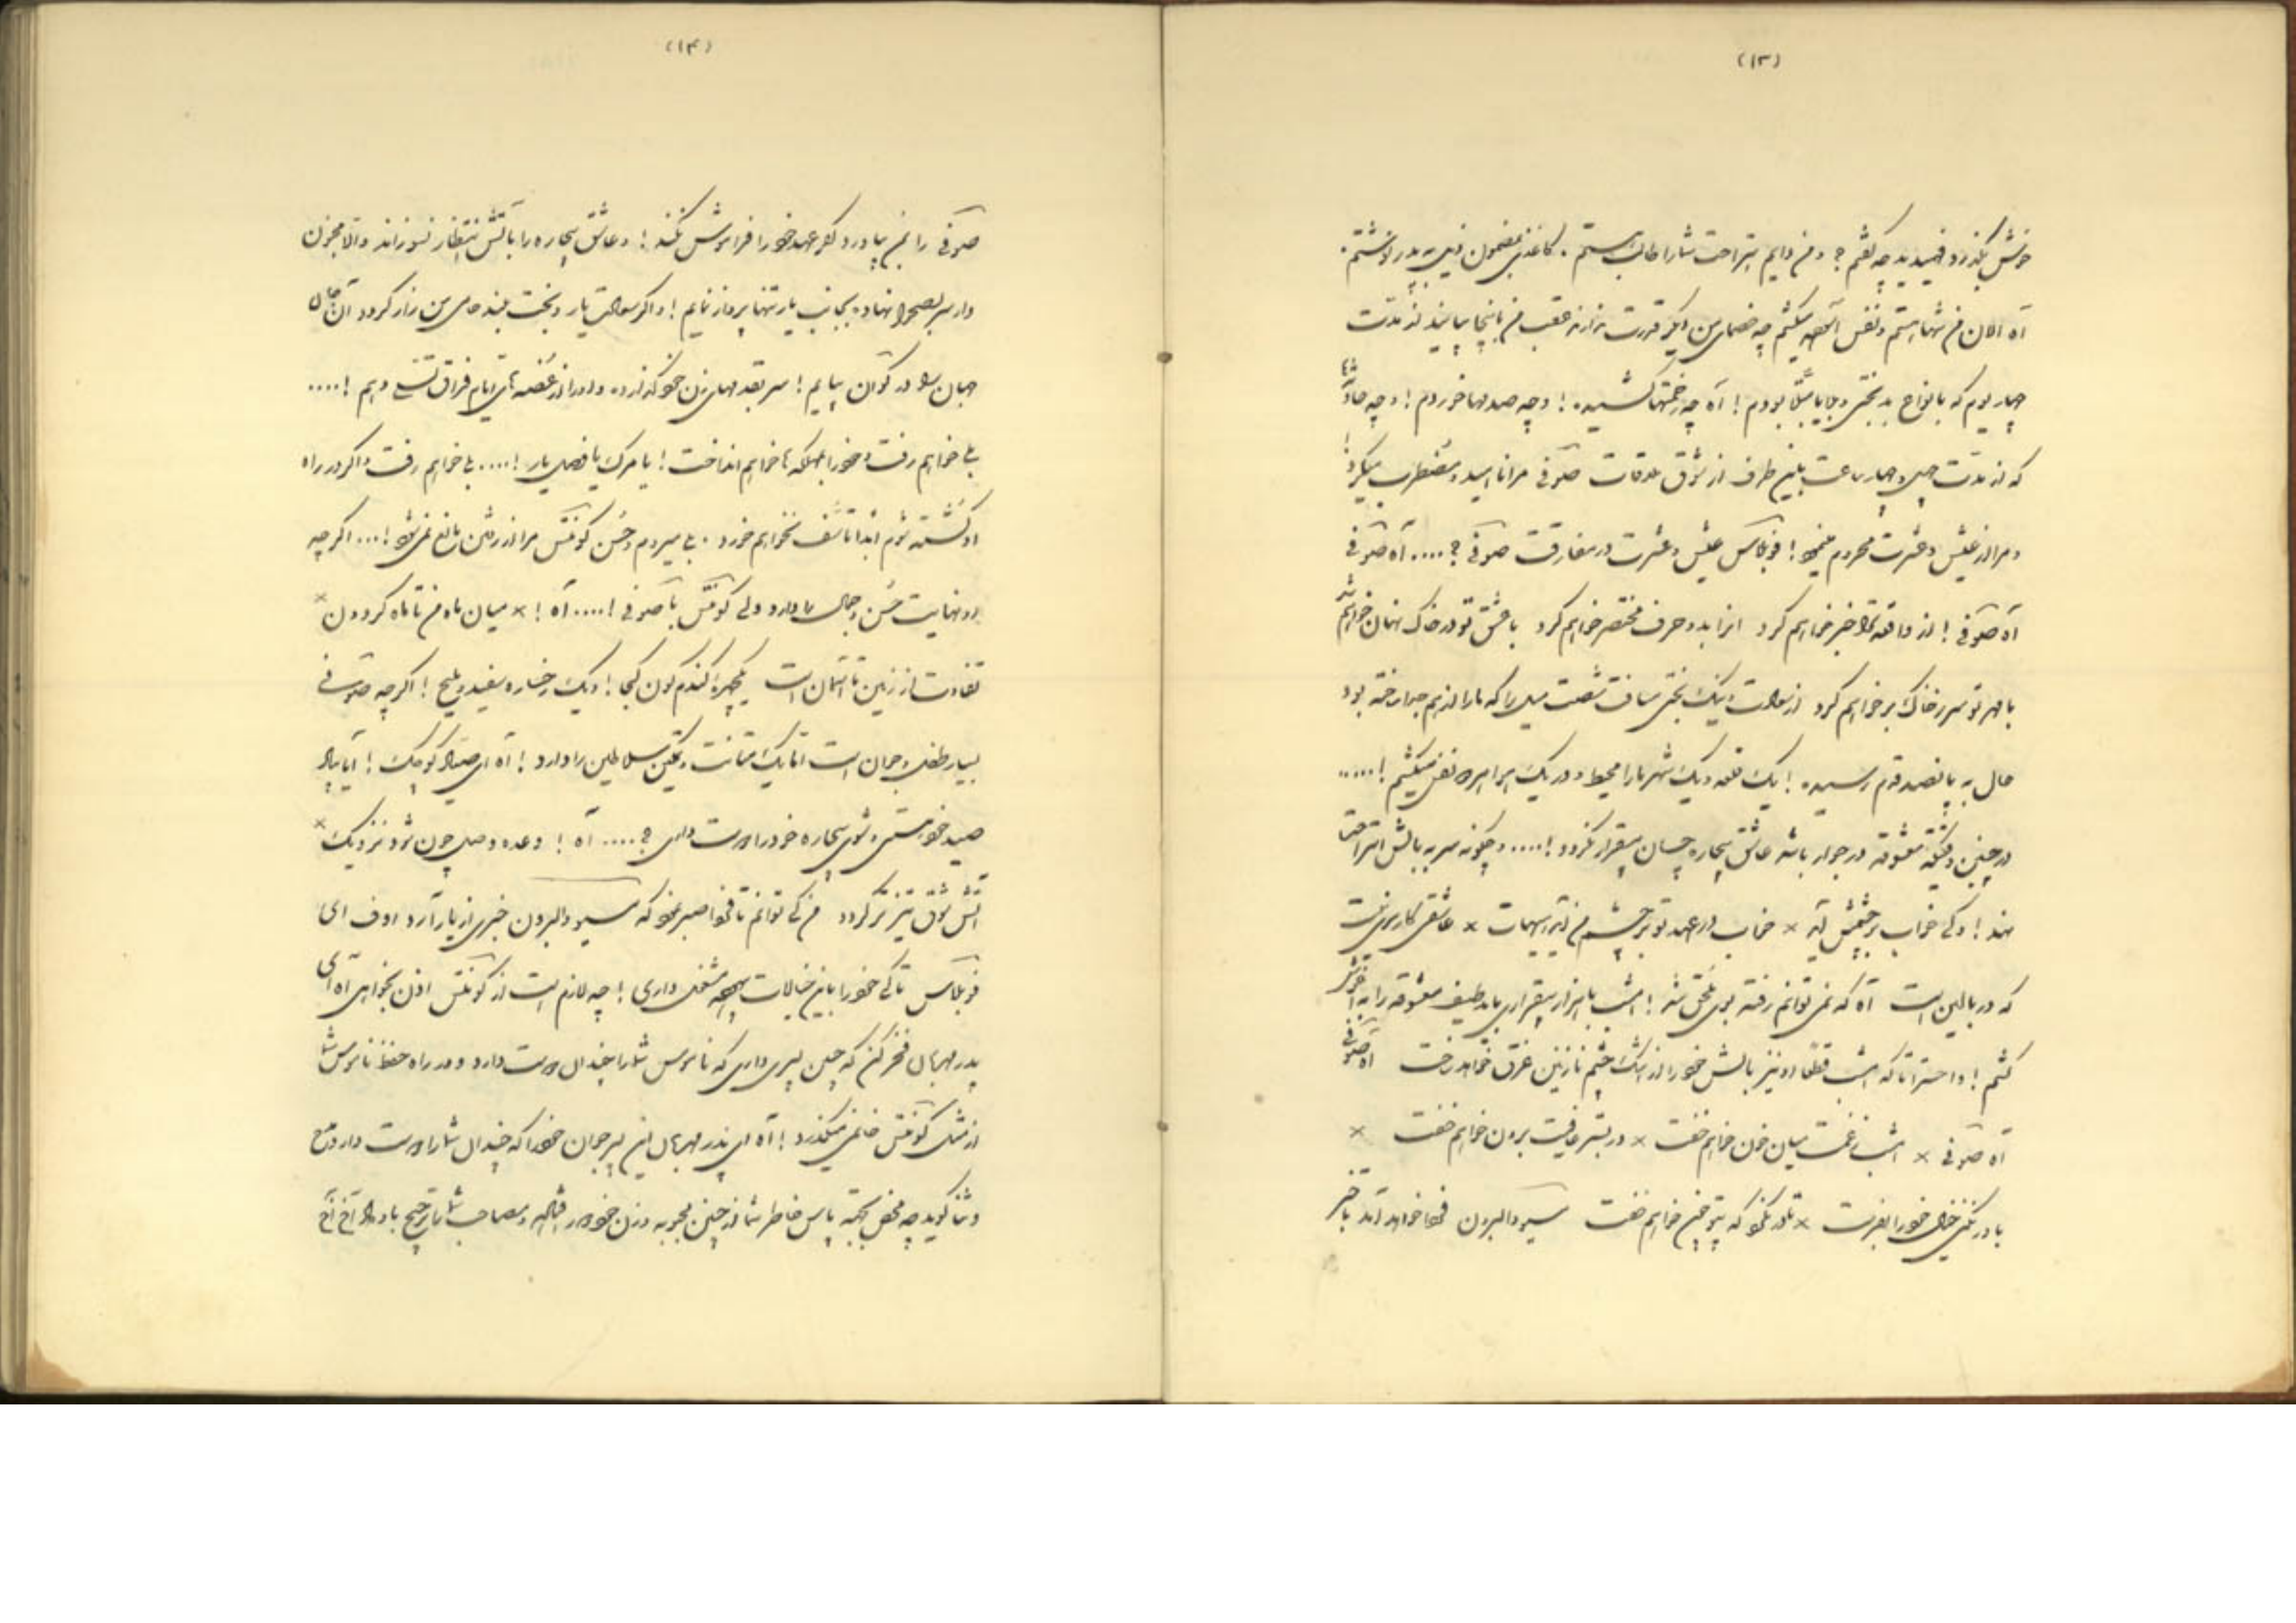 (۱۳)
خوش بگذرد فهمیدید چه گفتم؟ و من دایم استراحت شما را طالب هستم. کاغذی بمضمون ذیل به پدر نوشتم.
آه الان من تنها هستم و نفس آسوده میکشم چه خصمای من دیگر قدرت ندارند عقب من باینجا بیایند از مدت
چهار یوم که بانواع بدبختی و بلایا مبتلا بودم! آه چه زحمتها کشیدم! و چه صدمها خوردم! و چه
که از مدت چهل و چهار ساعت باین طرف از شوق ملاقات صوفی مرا ناامید و مضطرب میکرد!
و مرا از عیش و عشرت محروم مینمود! فوبلاس عیش و عشرت در مفارقت صوفی؟.... آه صوفی
آه صوفی! از واقعه ترا خبر خواهم کرد انرا بدو حرف مختصر خواهم کرد با عشق تو در خاک نهان خواهم شد
با مهر تو سر ز خاک بر خواهم کرد از سعادت و نیک بختی مسافت شصت میل را که ما را از هم جدا ساخته بود
حال به پانصد قدم رسیده! یک قلعه و یک شهر ما را محیط و در یک هوا هر دو نفس میکشیم!.....
در چنین دقیقه معشوقه در جوار باشد عاشق بیچاره چسان بیقرار نگردد!..... و چگونه سر به بالش استراحت
نهد! و کی خواب بر چشمش آید × خواب در عهد تو بر چشم من آید هیهات × عاشقی کار سری نیست
که در بالین است آه که نمی توانم رفته بوی ملحق شد! امشب با هزار بیقراری باید طیف معشوقه را به آغوش
کشم! وا حسرتا که امشب قطعا او نیز بالش خود را از اشک چشم نازنین غرق خواهد ساخت آه صوفی
آه صوفی × امشب ز غمت میان خون خواهم خفت × وز بستر عافیت برون خواهم خفت ×
باور نکنی خیال خود را بفرست × تا در نگرد که بی تو چون خواهم خفت مسیو دالبرون فردا خواهد آمد یا خبر
(۱۴)
صوفی را بمن بیاورد مگر عهد خود را فراموش نکند! و عاشق بیچاره را بآتش انتظار نسوزاند والا مجنون
وار سر بصحرا نهاده بجانب یار تنها پرواز نمایم! و اگر سعادت یار و بخت بلند حامی من زار گردد آن حال
جهان را در کوی آن بیایم! سر بقدمهای زن خود گذارده و او را از غصه های ایام فراق تسلی دهم!....
بلی خواهم رفت و خود را بمهلکه ها خواهم انداخت! یا مرگ یا وصل یار!.... بلی خواهم رفت و اگر در راه
او کشته شوم ابدا تاسف نخواهم خورد. بلی میروم و حسن کونتس مرا از رفتن مانع نمی شود!... اگر چه
او نهایت حسن و جمال را دارد ولی کونتس با صوفی!.... آه! × میان ماه من تا ماه گردون ×
تفاوت از زمین تا آسمان است یکچهره گندم گون کجا! و یک رخساره سفید و ملیح! اگر چه صوفی
بسیار طفل و جوان است اما یک متانت و تمکین سلاطین را دارد! آه ای صیاد کوچک! آیا باز
صید خود هستی و شوی بیچاره خود را دوست داری؟.... آه! وعده وصل چون شود نزدیک ×
آتش شوق تیز تر گردد من کی توانم تا فردا صبر نمود که مسیو دالبرون خبری از یار آرد اوف ای
فوبلاس تا کی خود را باین خیالات بیهوده مشغول داری! چه لازم است از کونتس اذن بخواهی آه ای
پدر مهربان فخر کن که چنین پسری داری که ناموس شما را چندان دوست دارد و در راه حفظ ناموس شما
از مثل کونتس خانمی میگذرد! آه ای پدر مهربان این پسر جوان خود را که چندان شما را دوست دارد مدح
و ثنا گوئید چه محض بجهة پاس خاطر شما از چنین محبوبه و زن خود